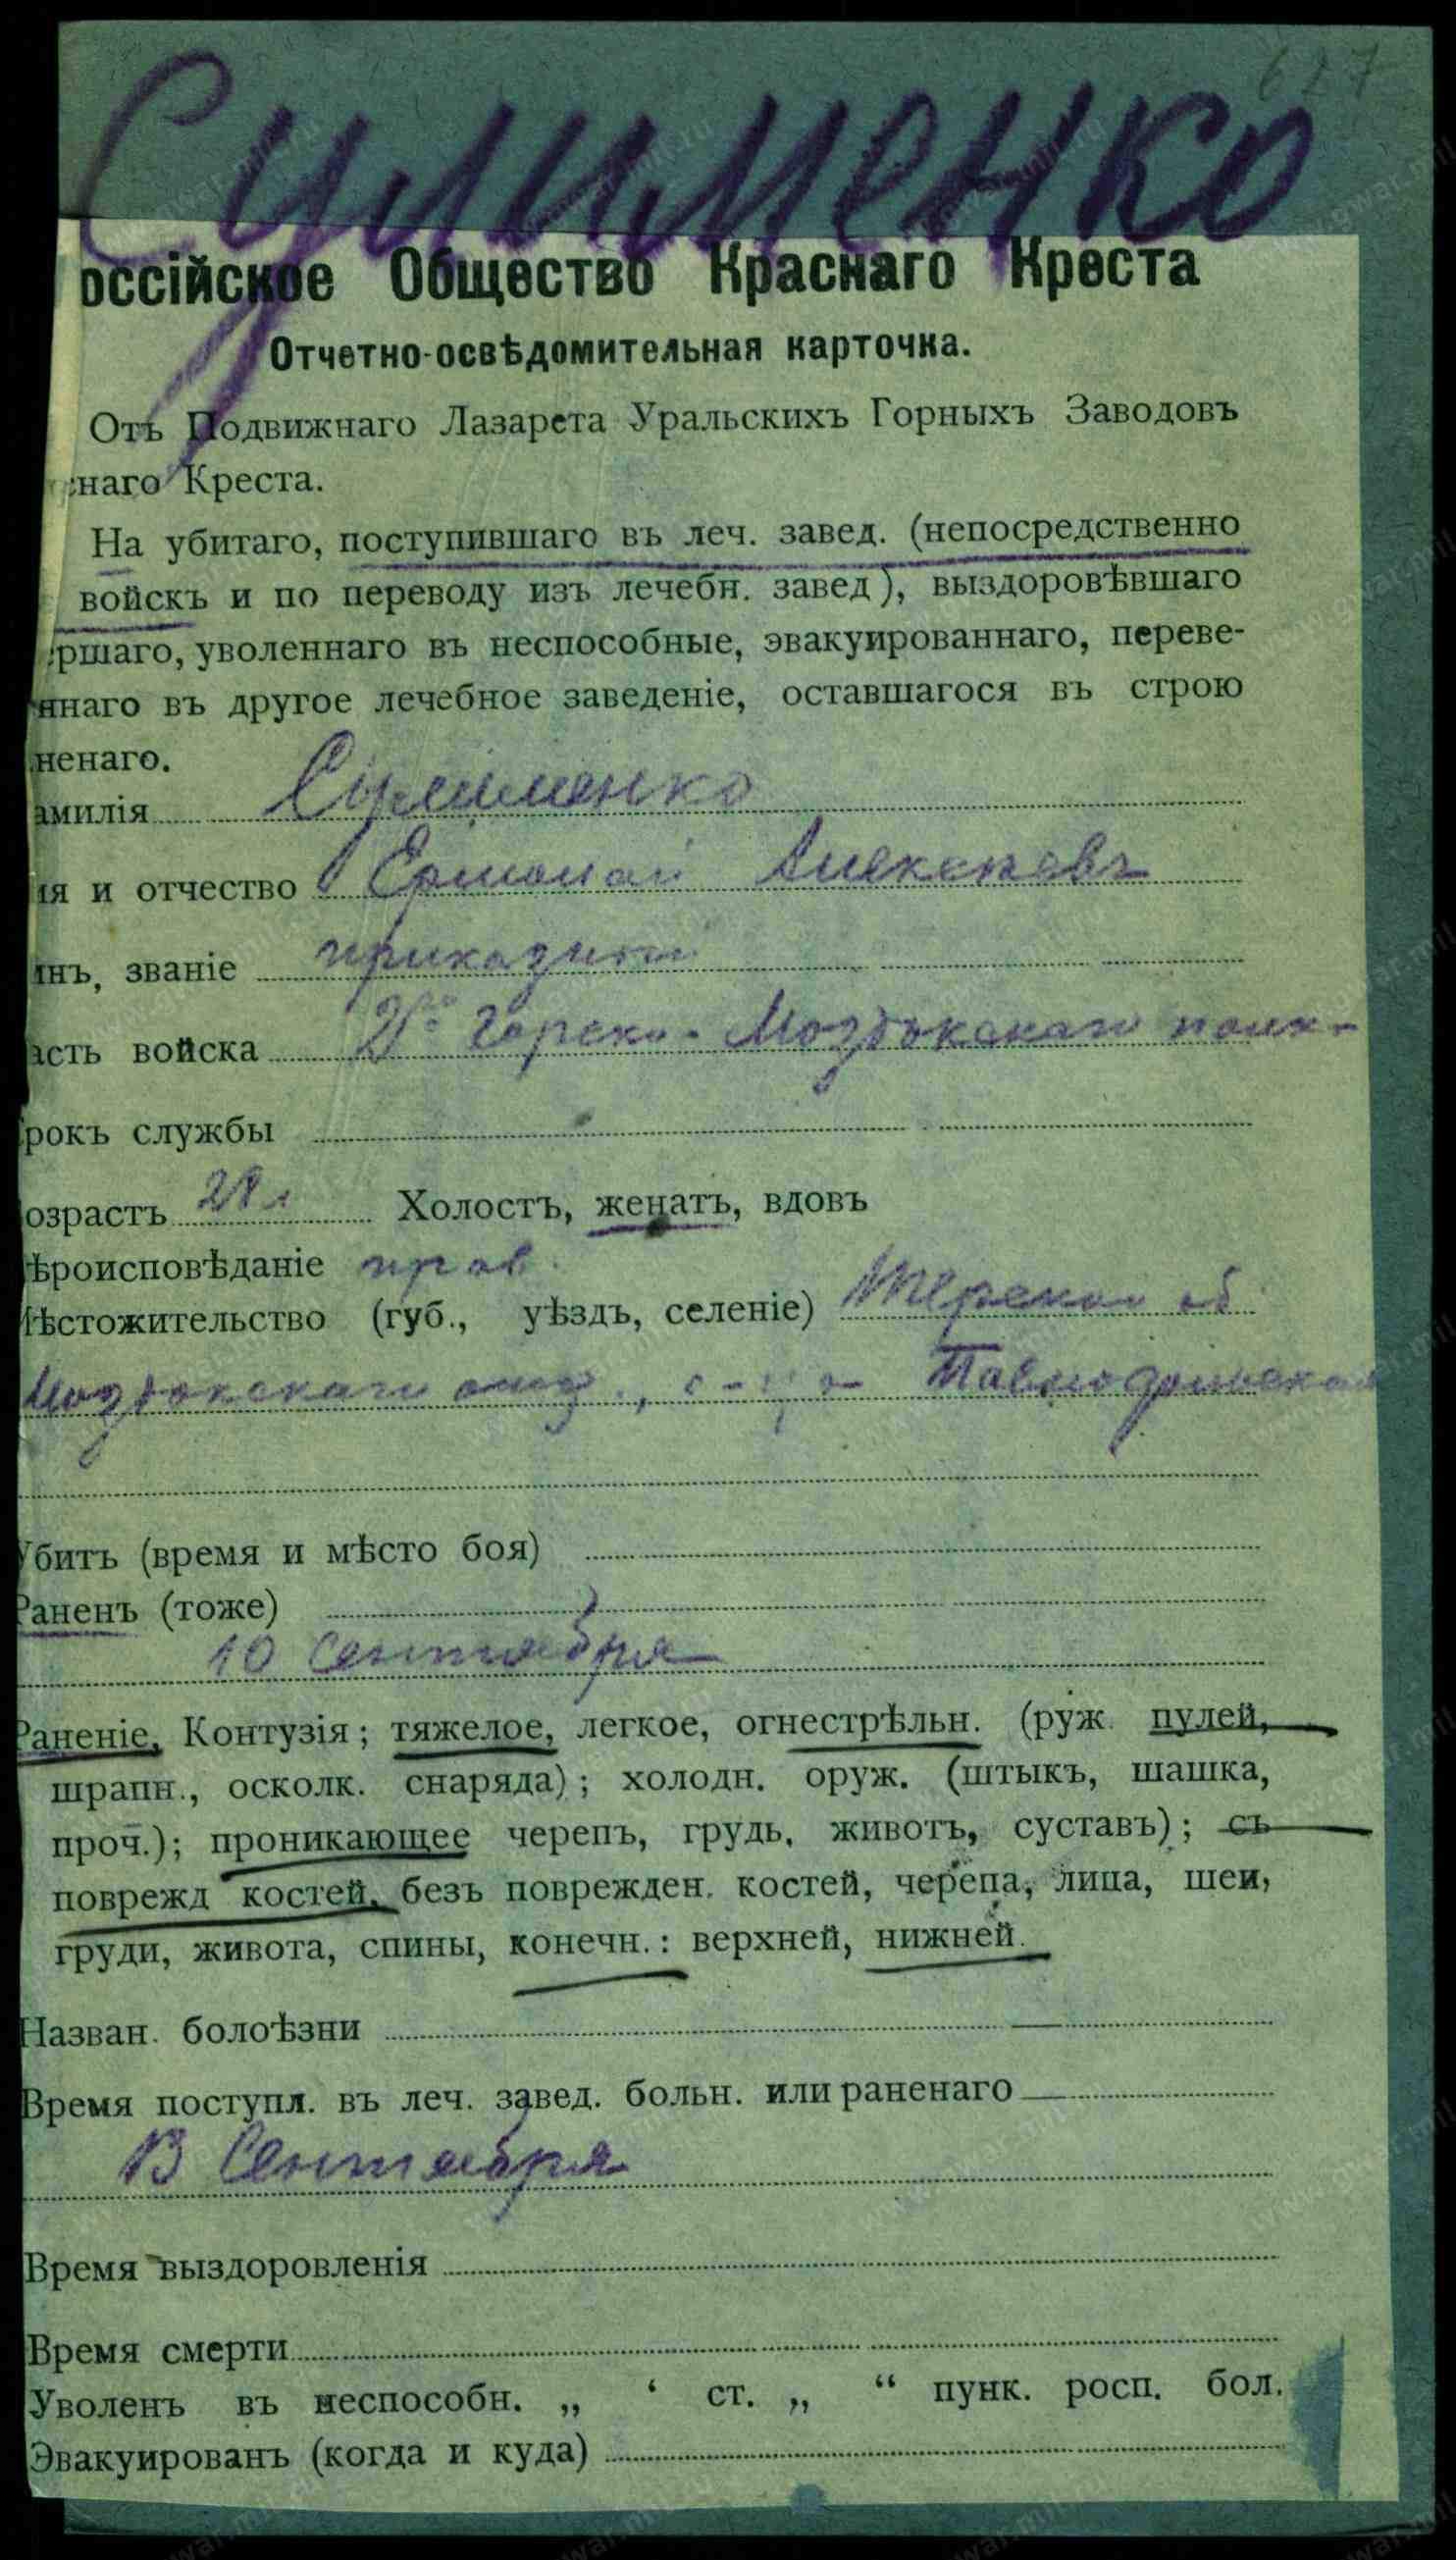 627
Сулименко
оссійское Общество Краснаго Креста
Отчетно-освѣдомительная карточка.
Отъ Подвижнаго Лазарета Уральскихъ Горныхъ Заводовъ
наго Креста.
На убитаго, поступившаго въ леч. завед. (непосредственно
войскъ и по переводу изъ лечебн. завед), выздоровѣвшаго
ршаго, уволеннаго въ неспособные, эвакуированнаго, переве-
ннаго въ другое лечебное заведеніе, оставшагося въ строю
ненаго.
амилія Сулименко
ия и отчество Ермолай Алексѣевъ
инъ, званіе приказный
асть войска 2го Горско-Моздокскаго полка
рокъ службы
озрастъ 28 л Холостъ, женатъ, вдовъ
ѣроисповѣданіе прав.
ѣстожительство (губ., уѣздъ, селеніе) Терской об
Моздокскаго отд., с-ца Павлодольская
Убитъ (время и мѣсто боя)
Раненъ (тоже)
10 Сентября
Раненіе, Контузія; тяжелое, легкое, огнестрѣльн. (руж. пулей,
шрапн., осколк. снаряда); холодн. оруж. (штыкъ, шашка,
проч.); проникающее черепъ, грудь, животъ, суставъ); съ
поврежд костей, безъ поврежден. костей, черепа, лица, шеи,
груди, живота, спины, конечн.: верхней, нижней.
Назван. болоѣзни
Время поступл. въ леч. завед. больн. или раненаго
13 Сентября
Время выздоровленія
Время смерти
Уволенъ въ неспособн. „ ‘ ст. „ “ пунк. росп. бол.
Эвакуированъ (когда и куда)